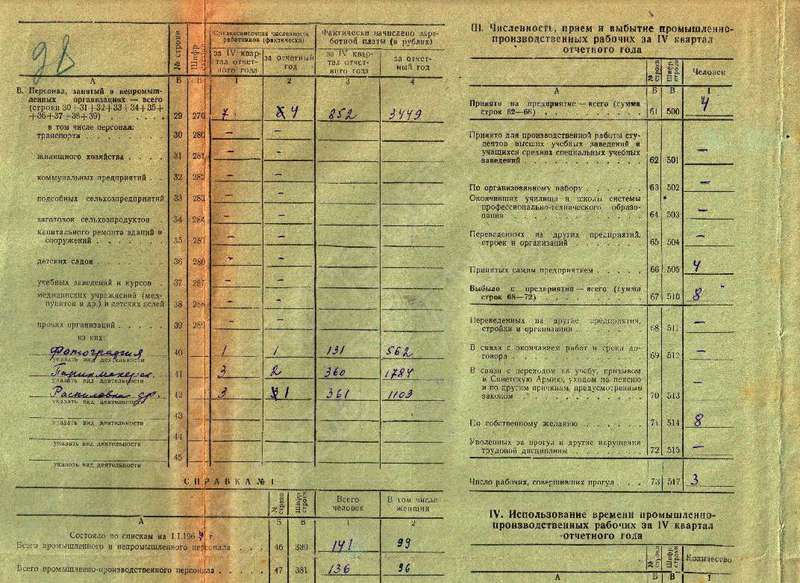 98
№ строки
Шифр строки
Среднесписочная численность работников (фактически)
за IV квартал отчетного года
за отчетный год
Фактически начислено заработной платы (в рублях)
за IV квартал отчетного года
за отчетный год
А Б В 1 2 3 4
В. Персонал, занятый в непромышленных организациях — всего
(строки 30+31+32+33+34+35+
+36+37+38+39) 29 276 7 4 852 3449
в том числе персонал:
транспорта 30 280 — —
жилищного хозяйства 31 281 — —
коммунальных предприятий 32 282 — —
подсобных сельхозпредприятий 33 283 — —
заготовок сельхозпродуктов 34 284 — —
капитального ремонта зданий и
сооружений 35 285 — —
детских садов 36 286 — —
учебных заведений и курсов 37 287 — —
медицинских учреждений (медпунктов и др.) и детских яслей 38 288 — —
прочих организаций 39 289
из них:
Фотография 40 1 1 131 562
указать вид деятельности
Парикмахерск. 41 3 2 360 1784
указать вид деятельности
Распиловка др. 42 3 1 361 1103
указать вид деятельности
43
указать вид деятельности
44
указать вид деятельности
45
указать вид деятельности
СПРАВКА № 1
№ строки
Шифр строки
Всего человек
В том числе женщин
А Б В 1 2
Состояло по спискам на 1.I.196 г.
Всего промышленного и непромышленного персонала 46 380 141 99
Всего промышленно-производственного персонала 47 381 136 96
III. Численность, прием и выбытие промышленно-
производственных рабочих за IV квартал
отчетного года
№ строки
Шифр строки
Человек
А Б В 1
Принято на предприятие — всего (сумма
строк 62—66) 61 500 4
Принято для производственной работы студентов высших учебных заведений и
учащихся средних специальных учебных
заведений 62 501 —
По организованному набору 63 502 —
Окончивших училища и школы системы
профессионально-технического образования 64 503 —
Переведенных из других предприятий,
строек и организаций 65 504 —
Принятых самим предприятием 66 505 4
Выбыло с предприятия — всего (сумма
строк 68—72) 67 510 8
Переведенных на другие предприятия,
стройки и организации 68 511 —
В связи с окончанием работ и срока договора 69 512 —
В связи с переходом на учебу, призывом
в Советскую Армию, уходом на пенсию
и по другим причинам, предусмотренным
законом 70 513 —
По собственному желанию 71 514 8
Уволенных за прогул и другие нарушения
трудовой дисциплины 72 515 —
Число рабочих, совершивших прогул 73 517 3
IV. Использование времени промышленно-
производственных рабочих за IV квартал
отчетного года
№ строки
Шифр строки
Количество
А Б В 1